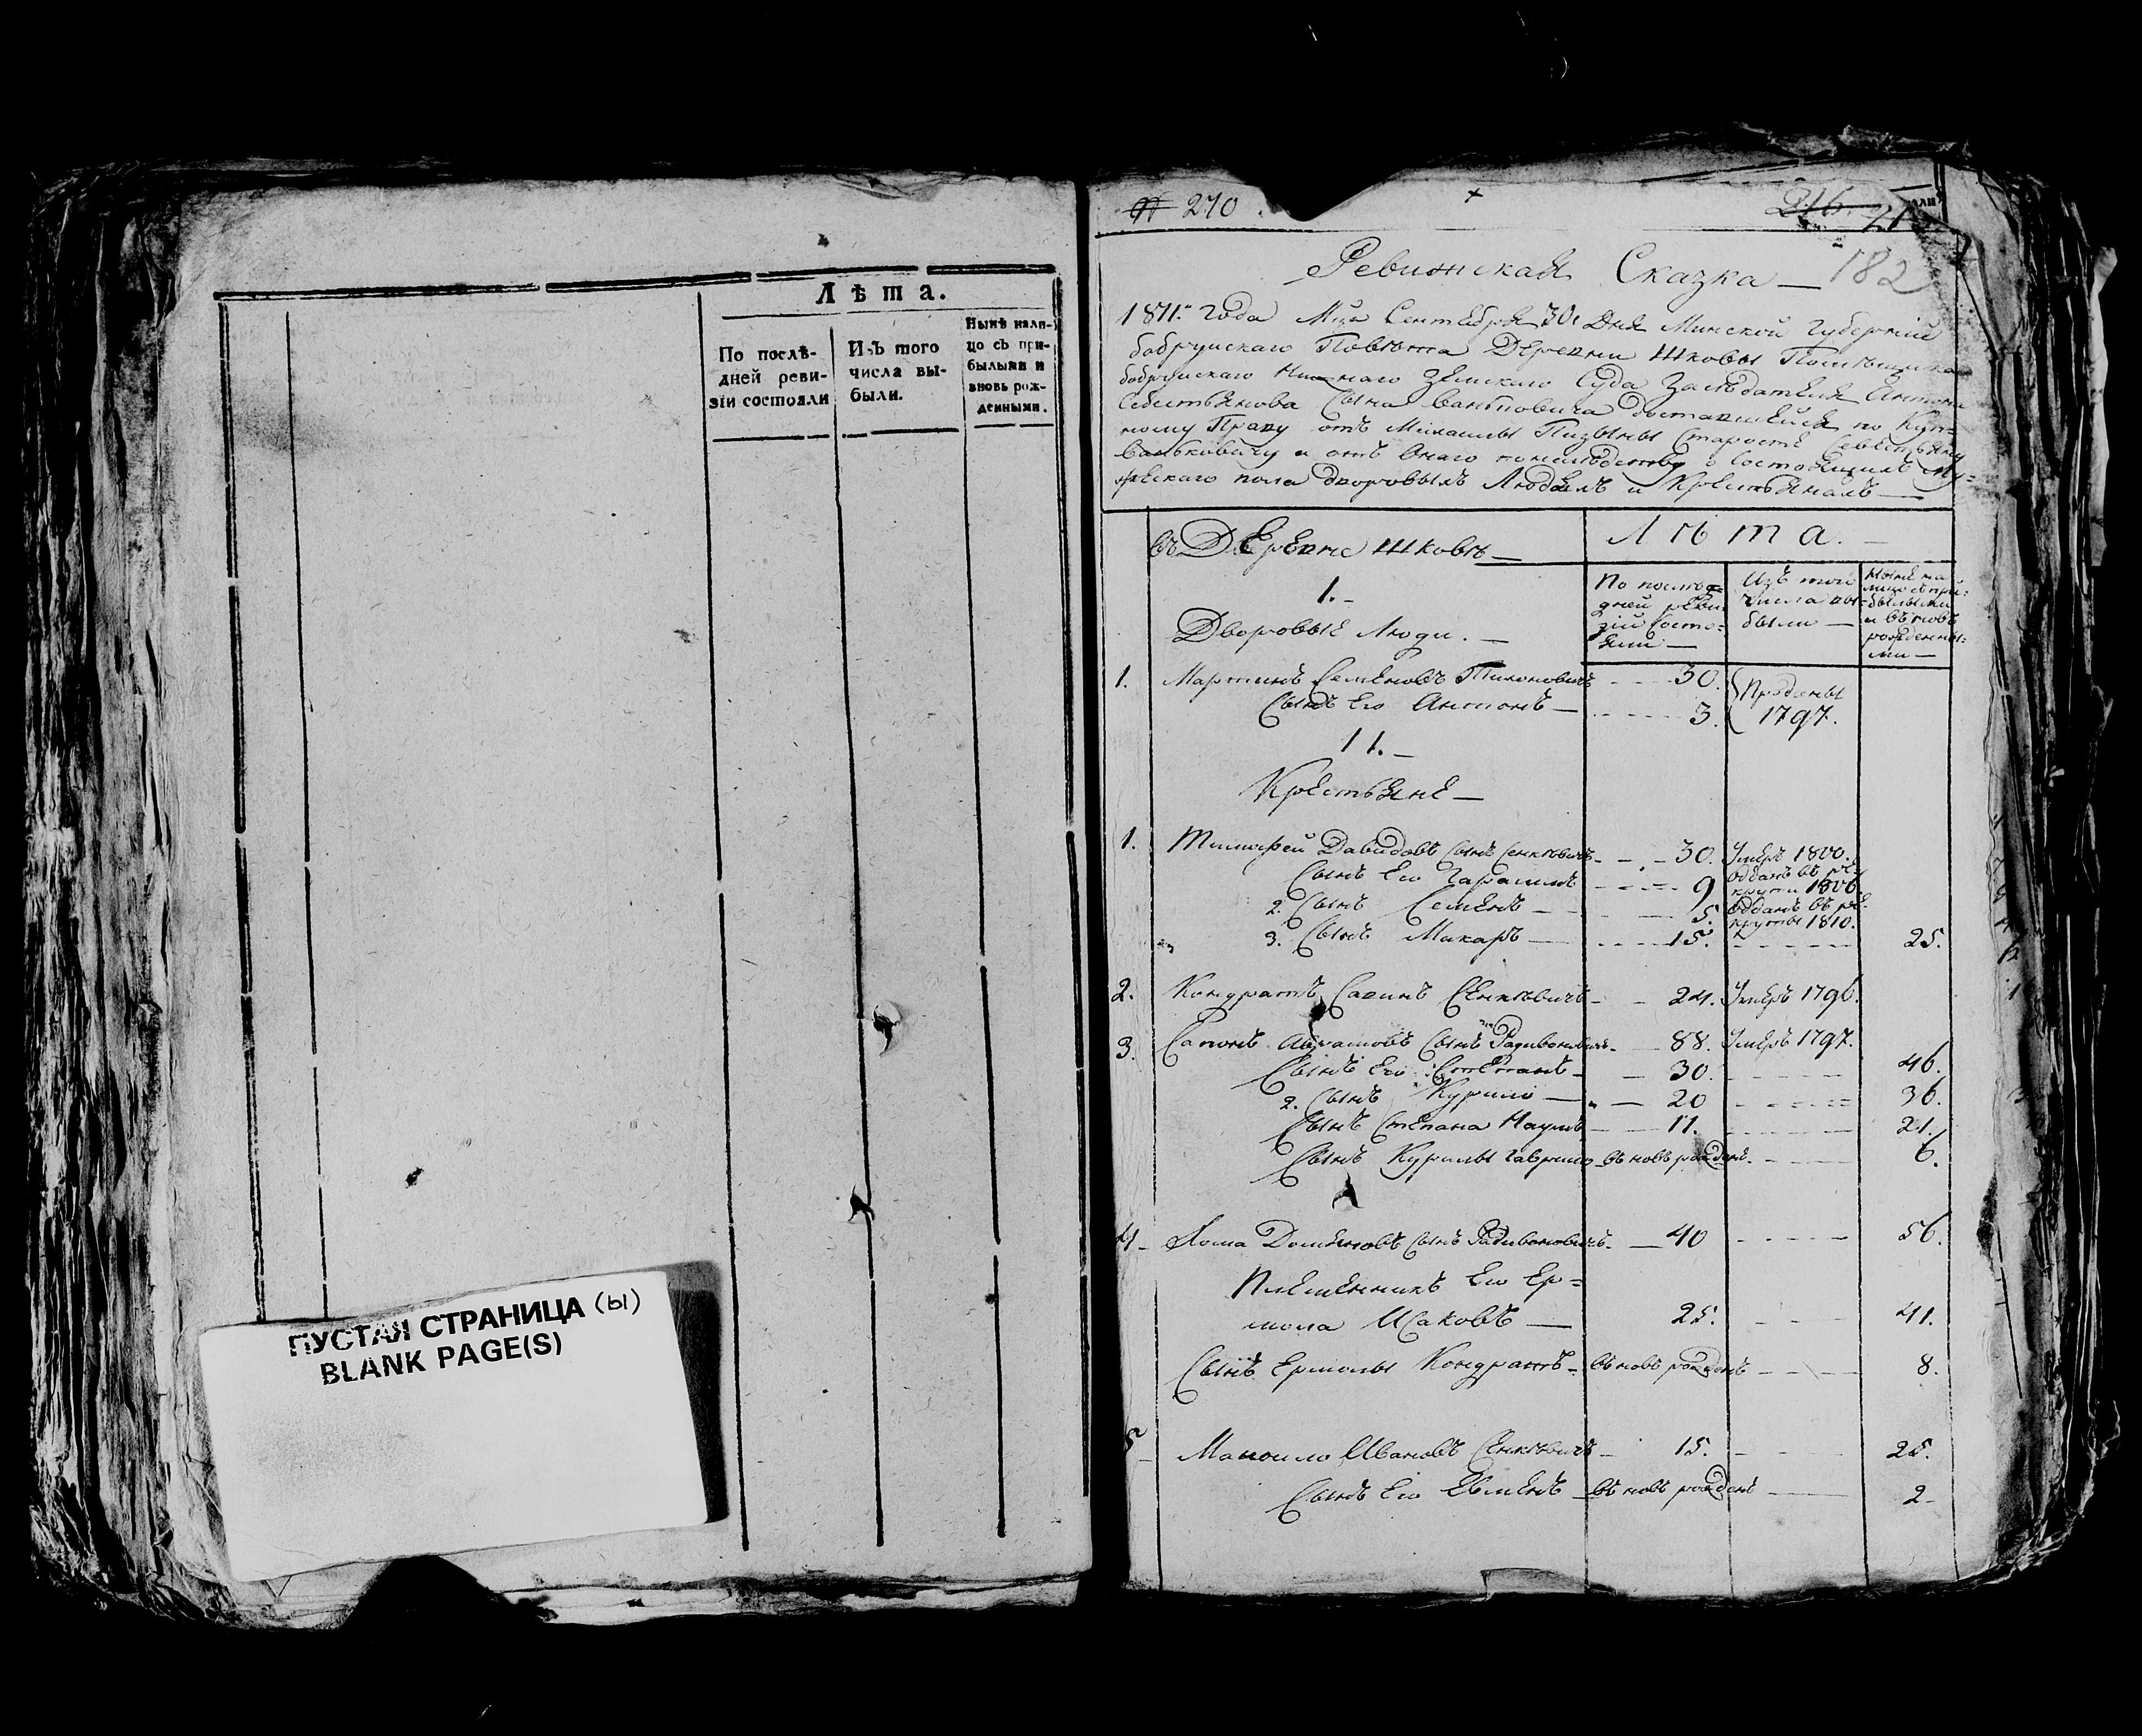 Лѣта.
По послѣ-
дней реви-
зіи состояли
Изъ того
числа вы-
были.
Нынѣ нали-
цо съ при-
былыми и
вновь рож-
денными.
ПУСТАЯ СТРАНИЦА (ы)
BLANK PAGE(S)
№ 270.
216.
Ревижская Сказка — 182
1811: года Мца Сентебря 30: Дня Минской Губерніи
бобруйскаго Повѣта Деревни Шковы Помѣщика
бобруйскаго Нижнаго Земскаго Суда Засѣдателя Антона
сына доставшейся по Куп-
ному Праву отъ Михаилы Старостѣ
Ваньковичу и отъ Онаго о Состоящихъ Му-
жескаго пола дворовыхъ Людяхъ и Крестьянахъ —
въ Деревне Шковѣ —
Лѣта. —
1. —
По послѣ-
дней реви-
зіи состо-
яли —
Изъ того
числа вы-
были —
Нынѣ на
лицо съ при-
былыми
и въ новь
рожденны-
ми —
Дворовые Люди. —
1. Мартинъ Семеновъ Тихоновичъ 30. Проданы
Сынъ Его Антонъ — 3. 1797.
11. —
Крестьяне —
1. Тимофей Давидовъ Сынъ Сенкѣвичъ 30. Умеръ 1800.
Сынъ Его Гарасимъ 9 отданъ въ ре-
круты 1806
2. Сынъ Семенъ — 5. отданъ въ ре-
круты 1810.
3. Сынъ Макаръ — 15. 25.
2. Кондратъ Савинъ Сенкѣвичъ 24. Умеръ 1796.
3. Сапонъ Абрамовъ Сынъ Радивоновичъ 88. Умеръ 1797.
Сынъ Его Степанъ 30. 46.
2. Сынъ Курило — 20 36.
Сынъ Степана Наумъ 11. 21.
Сынъ Курилы Гаврило въ новь рожденъ 6.
4. Хома Домяновъ Сынъ Радивоновичъ 40 56.
Племенникъ Его Ер-
мола Исаковъ — 25. 41.
Сынъ Ермолы Кондратъ въ новь рожденъ 8.
5 Маноило Ивановъ Сенкѣвичъ 15. 25.
Сынъ Его Евменъ въ новь рожденъ 2